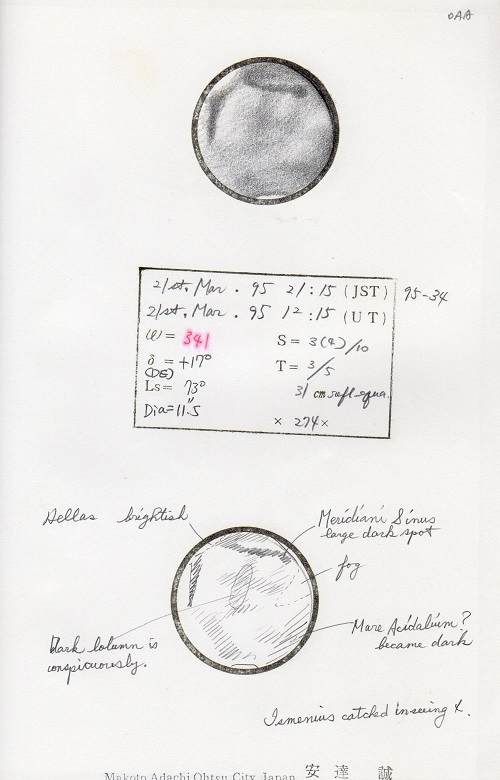 OAA
21st. Mar. 95 21:15 (JST) 95-34
21st. Mar. 95 12:15 (UT)
ω = 341
S = 3(4)/10
δ = +17°
(DE)
T = 3/5
Ls = 73°
31 cm refl-equa.
Dia = 11".5
× 274×
Hellas brightish
Meridiani Sinus
large dark spot
fog
Mare Acidalium?
became dark
Dark column is
conspicuously.
Ismenius catched in seeing 4.
Makoto Adachi Ohtsu City Japan 安達 誠